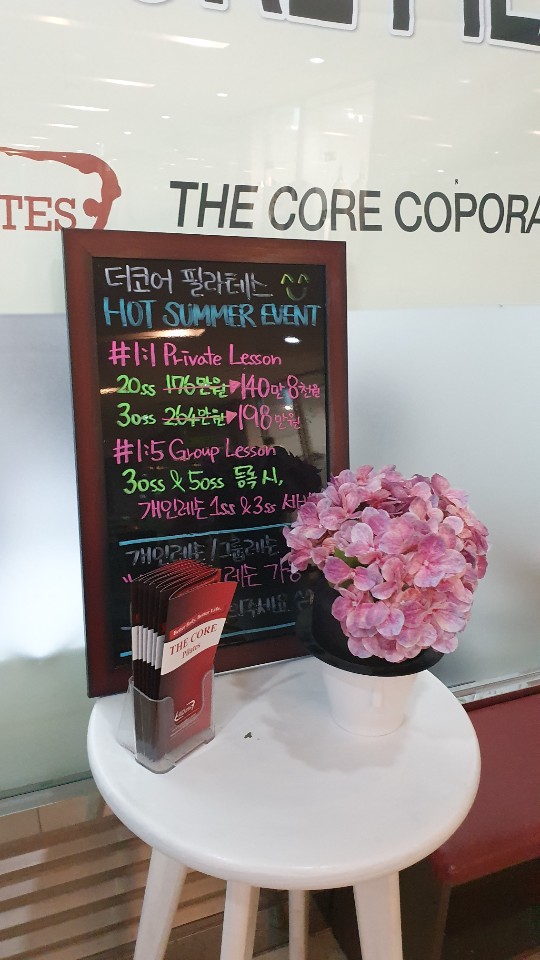 TES
THE CORE COPORA
더코어 필라테스
HOT SUMMER EVENT
#1:1 Private Lesson
20ss 176만원 140만 8천원
30ss 264만원 198만원
#1:5 Group Lesson
30ss & 50ss 등록 시,
개인레슨 1ss & 3ss 서비
개인레슨/그룹레슨
레슨 가능
THE CORE
Pilates